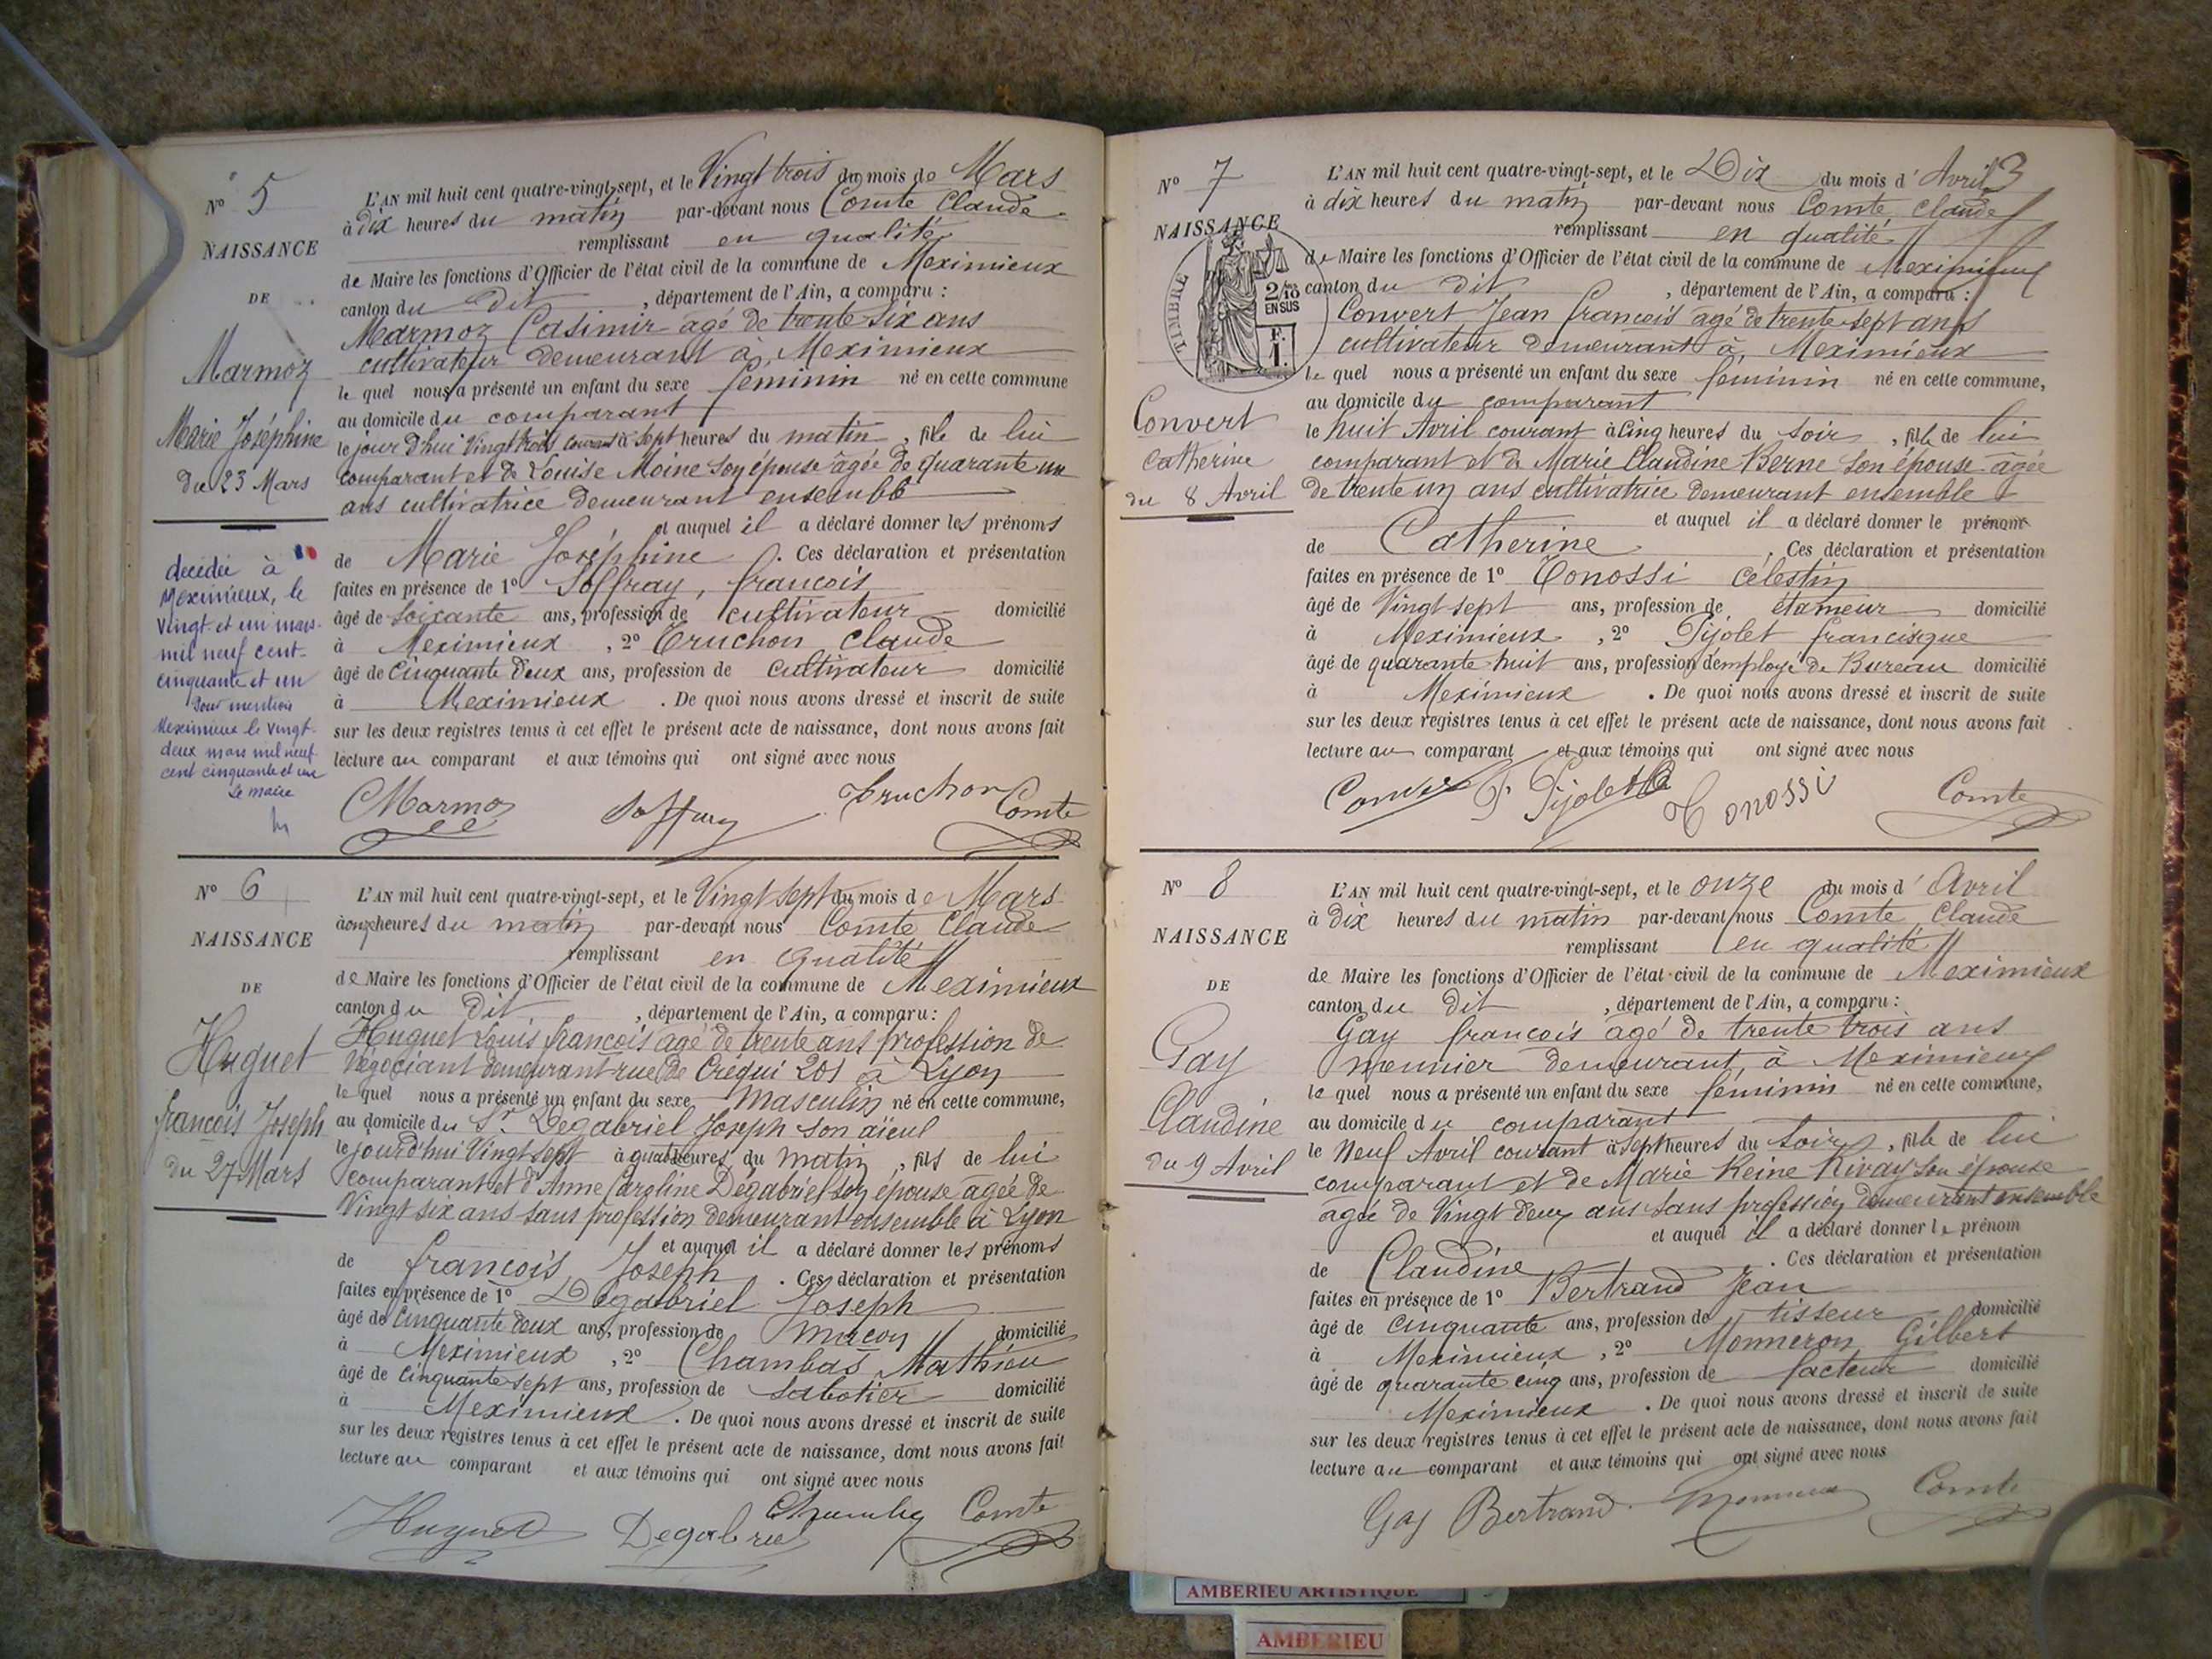 N° 5
NAISSANCE
DE
Marmoz
Marie Joséphine
du 23 Mars
décédée à
Meximieux, le
vingt et un mars
mil neuf cent
cinquante et un
Pour mention
Meximieux le vingt-
deux mars mil neuf
cent cinquante et un
Le maire
L'AN mil huit cent quatre-vingt-sept, et le Vingt trois du mois de Mars
à Dix heures du matin par-devant nous Comte Claude
remplissant en qualité
de Maire les fonctions d'Officier de l'état civil de la commune de Meximieux
canton du dit, département de l'Ain, a comparu :
Marmoz Casimir agé de trente six ans
cultivateur demeurant à Meximieux
le quel nous a présenté un enfant du sexe féminin né en cette commune
au domicile du comparant
le jour d'hui Vingt trois courant à sept heures du matin, fille de lui
comparant et de Louise Moine son épouse âgée de quarante un
ans cultivatrice demeurant ensemble
et auquel il a déclaré donner les prénoms
de Marie Joséphine. Ces déclaration et présentation
faites en présence de 1° Soffray, françois
âgé de soixante ans, profession de cultivateur domicilié
à Meximieux, 2° Truchon Claude
âgé de Cinquante deux ans, profession de cultivateur domicilié
à Meximieux. De quoi nous avons dressé et inscrit de suite
sur les deux registres tenus à cet effet le présent acte de naissance, dont nous avons fait
lecture au comparant et aux témoins qui ont signé avec nous
Marmoz Soffray Truchon Comte
N° 6
NAISSANCE
DE
Huguet
françois Joseph
du 27 Mars
L'AN mil huit cent quatre-vingt-sept, et le Vingt sept du mois de Mars
à onze heures du matin par-devant nous Comte Claude
remplissant en qualité
de Maire les fonctions d'Officier de l'état civil de la commune de Meximieux
canton du dit, département de l'Ain, a comparu :
Huguet Louis françois agé de trente ans profession de
Négociant demeurant rue de Créqui 201 à Lyon
le quel nous a présenté un enfant du sexe masculin né en cette commune,
au domicile du Sr. Degabriel Joseph son aïeul
le jourd'hui Vingt sept à quatre heures du matin, fils de lui
comparant et d'Anne Caroline Degabriel son épouse agée de
Vingt six ans sans profession demeurant ensemble à Lyon
et auquel il a déclaré donner les prénoms
de françois Joseph. Ces déclaration et présentation
faites en présence de 1° Degabriel Joseph
âgé de Cinquante deux ans, profession de maçon domicilié
à Meximieux, 2° Chambas Mathieu
âgé de Cinquante sept ans, profession de sabotier domicilié
à Meximieux. De quoi nous avons dressé et inscrit de suite
sur les deux registres tenus à cet effet le présent acte de naissance, dont nous avons fait
lecture au comparant et aux témoins qui ont signé avec nous
Huguet Degabriel Chambas Comte
3
N° 7
NAISSANCE
TIMBRE
2/10
EN SUS
F.
1.
Convert
Catherine
du 8 Avril
L'AN mil huit cent quatre-vingt-sept, et le Dix du mois d'Avril
à dix heures du matin par-devant nous Comte Claude
remplissant en qualité
de Maire les fonctions d'Officier de l'état civil de la commune de Meximieux
canton du dit, département de l'Ain, a comparu :
Convert Jean François agé de trente sept ans
cultivateur demeurant à Meximieux
le quel nous a présenté un enfant du sexe féminin né en cette commune,
au domicile du comparant
le huit Avril courant à Cinq heures du soir, fille de lui
comparant et de Marie Claudine Berne son épouse agée
de trente un ans cultivatrice demeurant ensemble
et auquel il a déclaré donner le prénom
de Catherine. Ces déclaration et présentation
faites en présence de 1° Conossi Célestin
âgé de Vingt sept ans, profession de étameur domicilié
à Meximieux, 2° Pijolet francisque
âgé de quarante huit ans, profession d'employé de Bureau domicilié
à Meximieux. De quoi nous avons dressé et inscrit de suite
sur les deux registres tenus à cet effet le présent acte de naissance, dont nous avons fait
lecture au comparant et aux témoins qui ont signé avec nous
Convert F. Pijolet Conossi Comte
N° 8
NAISSANCE
DE
Gay
Claudine
du 9 Avril
L'AN mil huit cent quatre-vingt-sept, et le onze du mois d'Avril
à Dix heures du matin par-devant nous Comte Claude
remplissant en qualité
de Maire les fonctions d'Officier de l'état civil de la commune de Meximieux
canton du dit, département de l'Ain, a comparu :
Gay françois agé de trente trois ans
meunier demeurant à Meximieux
le quel nous a présenté un enfant du sexe féminin né en cette commune,
au domicile du comparant
le Neuf Avril courant à sept heures du soir, fille de lui
comparant et de Marie Reine Rivay son épouse
agée de Vingt deux ans sans profession demeurant ensemble
et auquel il a déclaré donner le prénom
de Claudine. Ces déclaration et présentation
faites en présence de 1° Bertrand Jean
âgé de cinquante ans, profession de tisseur domicilié
à Meximieux, 2° Monneron Gilbert
âgé de quarante cinq ans, profession de facteur domicilié
Meximieux. De quoi nous avons dressé et inscrit de suite
sur les deux registres tenus à cet effet le présent acte de naissance, dont nous avons fait
lecture au comparant et aux témoins qui ont signé avec nous
Gay Bertrand Comte
AMBERIEU ARTISTIQUE
AMBERIEU